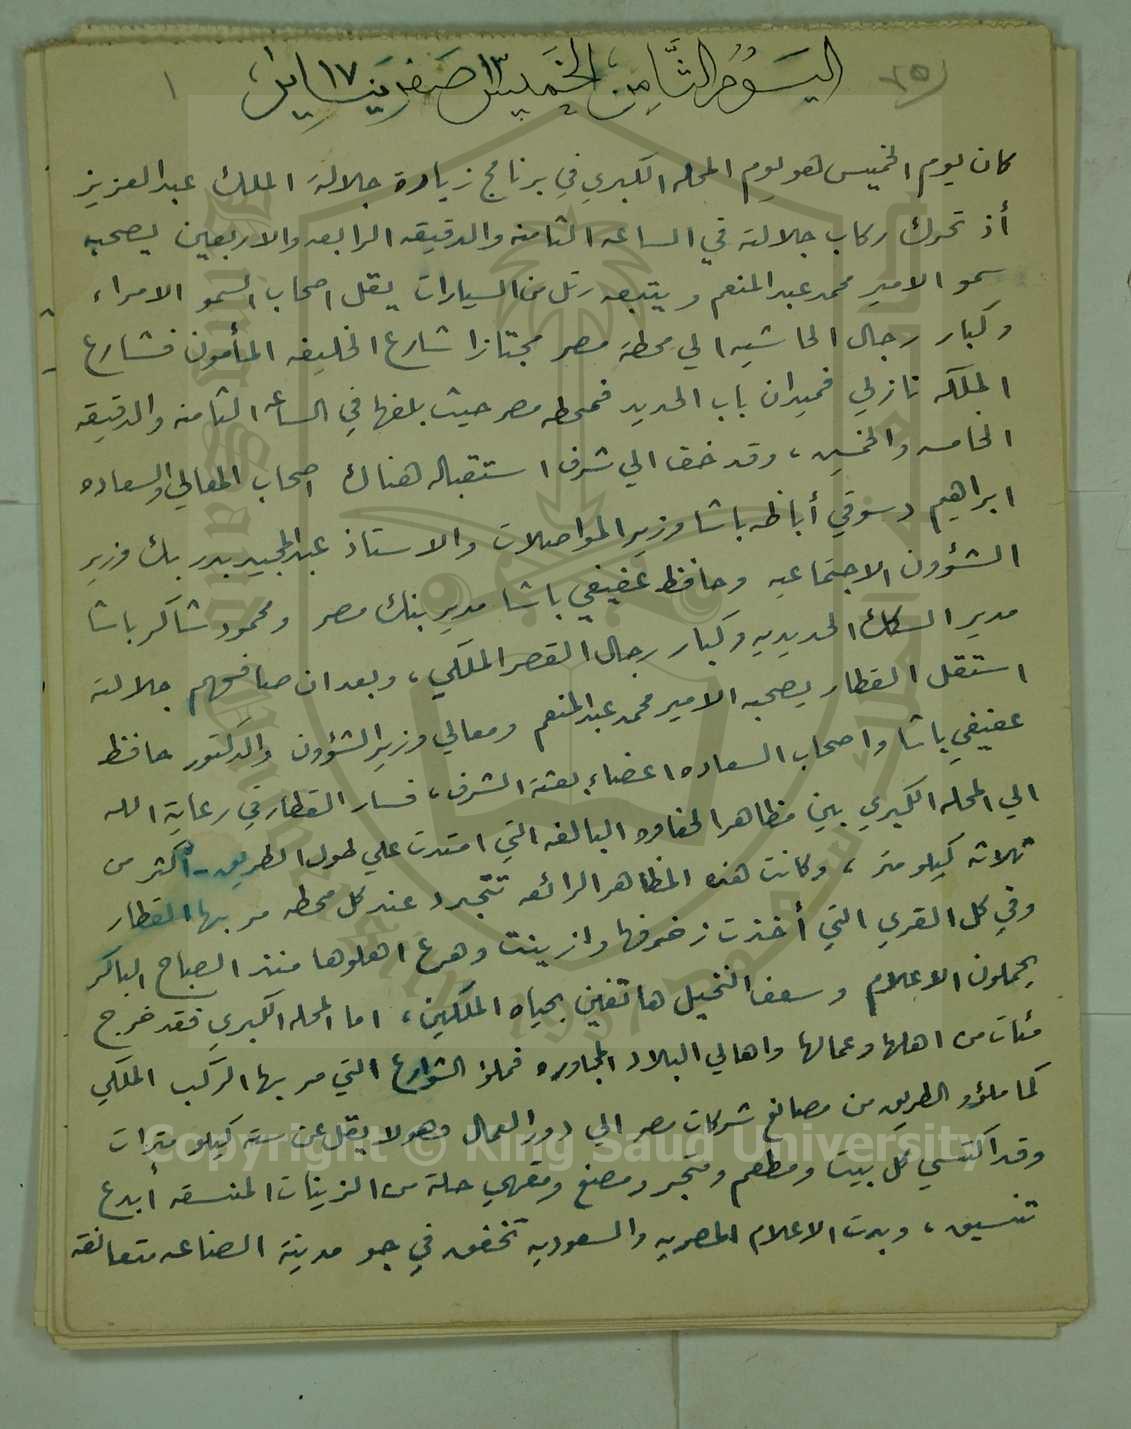 ٢٥
١
اليوم الثامن، الخميس ١٣ صفر ١٧ يناير
كان يوم الخميس هو يوم المحله الكبري في برنامج زيارة جلالة الملك عبد العزيز
أذ تحرك ركاب جلالته في الساعه الثامنه والدقيقه الرابعه والاربعين يصحبه
سمو الامير محمد عبد المنعم ويتبعه رتل من السيارات يقل اصحاب السمو الامراء
وكبار رجال الحاشيه الي محطة مصر مجتازا شارع الخليفه المأمون فشارع
الملكه نازلي فميدان باب الحديد فمحطه مصر حيث بلغها في الساعه الثامنه والدقيقه
الخامسه والخمسين، وقد خف الي شرف استقباله هناك اصحاب المعالي والسعاده
ابراهيم دسوقي أباظه باشا وزير المواصلات والاستاذ عبد المجيد بدر بك وزير
الشؤون الاجتماعيه وحافظ عفيفي باشا مدير بنك مصر ومحمود شاكر باشا
مدير السكك الحديديه وكبار رجال القصر الملكي، وبعد ان صافحهم جلالته
استقل القطار يصحبه الامير محمد عبد المنعم ومعالي وزير الشؤون والدكتور حافظ
عفيفي باشا واصحاب السعاده اعضاء بعثة الشرف، فسار القطار في رعاية الله
الي المحله الكبري بين مظاهر الحفاوه البالغه التي امتدت علي طول الطريق - اكثر من
ثلاثه كيلو متر، وكانت هذه المظاهر الرائعه تتجدد عند كل محطه مر بها القطار
وفي كل القري التي أخذت زخرفها وازينت وهرع اهلوها منذ الصباح الباكر
يحملون الاعلام وسعف النخيل هاتفين بحياه الملكين، اما المحله الكبري فقد خرج
مئات من اهلها وعمالها واهالي البلاد المجاوره فملؤ الشوارع التي مر بها الركب الملكي
كما ملؤو الطريق من مصانع شركات مصر الي دور العمال وهو لا يقل عن سته كيلو مترات
وقد اكتسي كل بيت ومطعم ومتجر ومصنع ومقهي حلة من الزينات المنسقه أبدع
تنسيق، وبدت الاعلام المصريه والسعوديه تخفق في جو مدينة الصناعه متعانقه
Copyright © King Saud University